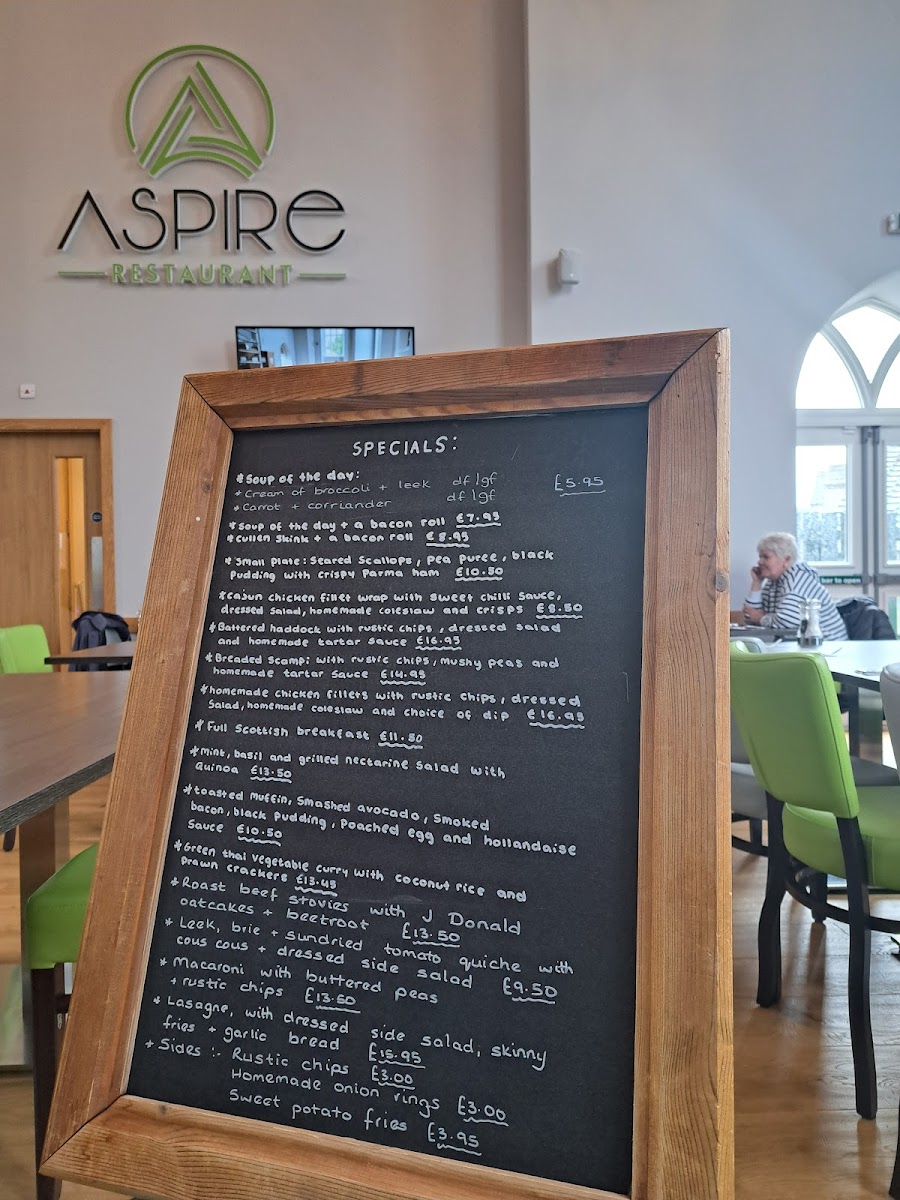 ASPIRE
RESTAURANT
SPECIALS:
* Soup of the day:
* Cream of broccoli + leek df/gf £5.95
* Carrot + corriander df/gf
* Soup of the day + a bacon roll £7.95
* Cullen Skink + a bacon roll £8.95
* Small Plate: Seared Scallops, pea puree, black
pudding with crispy Parma ham £10.50
* Cajun chicken fillet wrap with sweet chilli sauce,
dressed salad, homemade coleslaw and crisps £8.50
* Battered haddock with rustic chips, dressed salad
and homemade tartar sauce £16.95
* Breaded Scampi with rustic chips, mushy peas and
homemade tartar sauce £14.95
* homemade chicken fillets with rustic chips, dressed
Salad, homemade coleslaw and choice of dip £16.95
* Full Scottish breakfast £11.50
* Mint, basil and grilled nectarine salad with
Quinoa £13.50
* toasted muffin, smashed avocado, smoked
bacon, black pudding, Poached egg and hollandaise
sauce £10.50
* Green thai vegetable curry with coconut rice and
prawn crackers £13.45
* Roast beef stovies with J Donald
oatcakes + beetroot £13.50
* Leek, brie + sundried tomato quiche with
cous cous + dressed side salad £9.50
* Macaroni with buttered peas
+ rustic chips £13.50
* Lasagne, with dressed side salad, skinny
fries + garlic bread £15.95
* Sides :- Rustic chips £3.00
Homemade onion rings £3.00
Sweet potato fries £3.95
bar to open